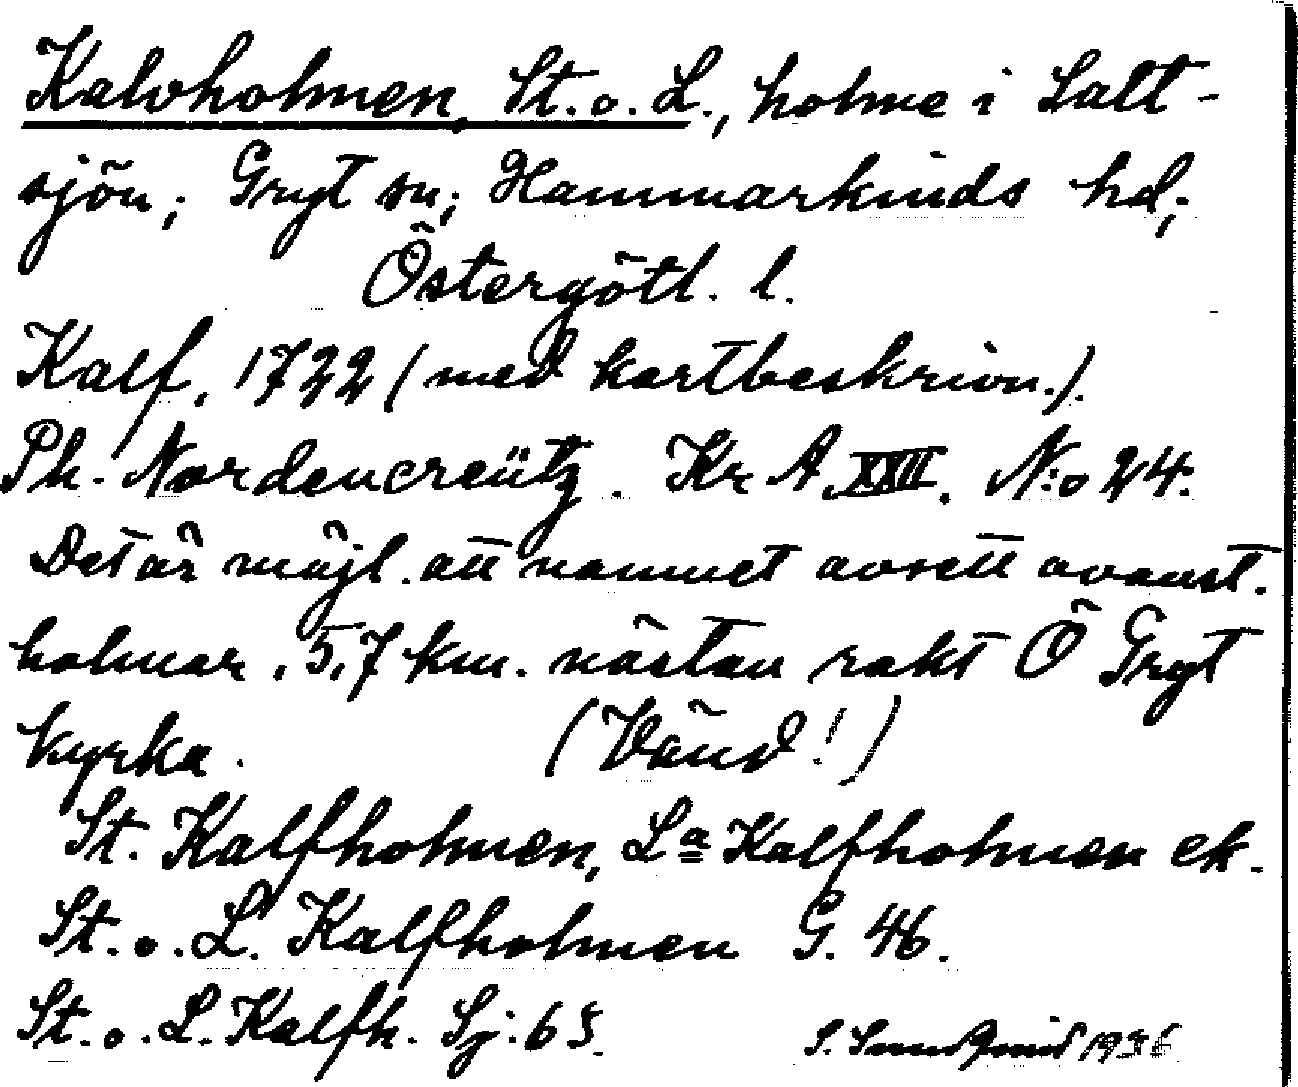 Kalvholmen, St. o. L., holme i Salt-
sjön; Gryt sn; Hammarkinds hd;
Östergötl. l.
Kalf, 1722 (med kartbeskrivn.).
Ph. Nordencreütz. Kr A XXII. N:o 24.
Det är möjl. att namnet avsett ovanst.
holmar. 5,7 km. nästan rakt Ö Gryt
kyrka. (Vänd!)
St. Kalfholmen, La Kalfholmen ek.
St. o. L. Kalfholmen G. 46.
St. o. L. Kalfh. Sj: 65.
S. 1936